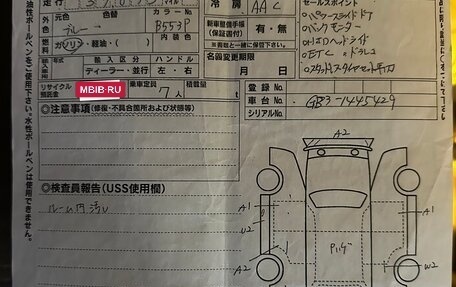 走行
冷房 AAC
セールスポイント
元色 色替 カラー No.
ブルー B553P
新車整備手帳(保証書付) 有・無
※書類と一緒に保管して下さい。
・バックモニター
・HIDヘッドライト
ガソリン・軽油・( )
輸入区分 ハンドル
ディーラー・並行 左・右
名義変更期限
月 日
・ETC ・ドラレコ
リサイクル預託金
MBIB·RU
乗車定員 積載量
7人 t
登録No.
車台No. GB3-1445429
シリアルNo.
◎注意事項(修復・不具合箇所および状態等)
◎検査員報告(USS使用欄)
ルーム内汚レ
A2
A1
A1
W2
W2
A2
油性ボールペンを使用下さい。水性ボールペンは使用できません。